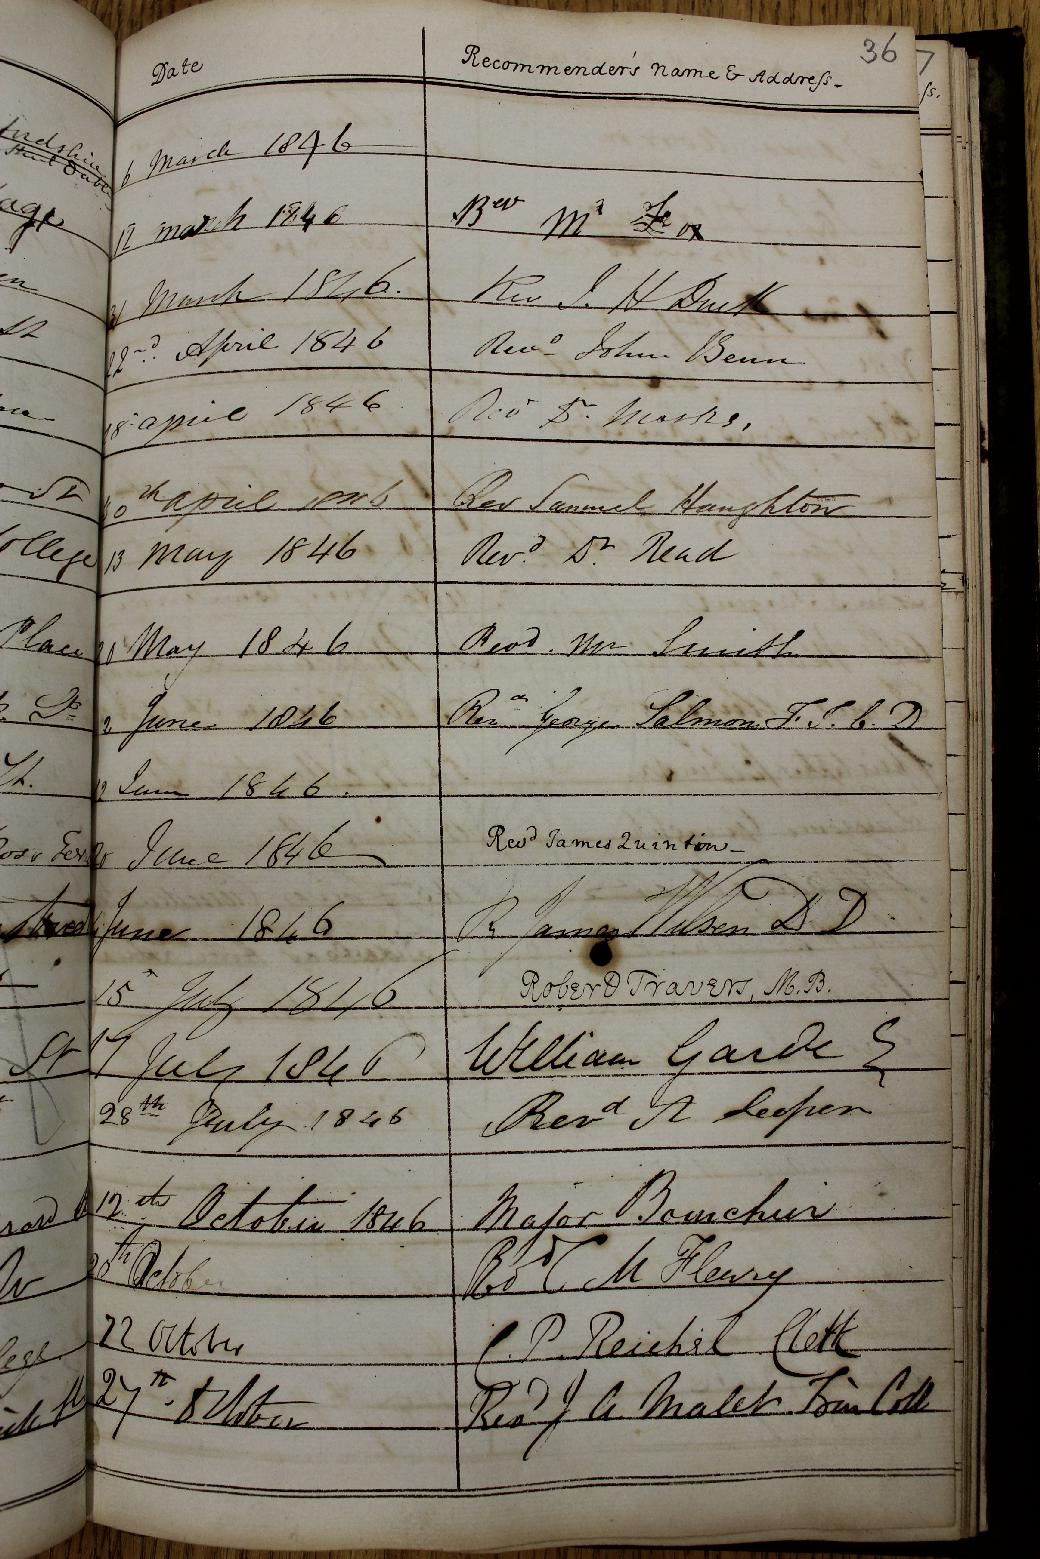 36
Date Recommender's Name & Address.
6 March 1846
12 march 1846 Rev Mr Fox
March 1846. Rev J. H
22nd April 1846 Revd John Benn
18 april 1846 Rev Dr Marks,
30th april 1846 Rev Samuel Haughton
13 May 1846 Revd Dr Read
20 May 1846 Revd. Mr Smith
2 June 1846 Revd George Salmon F. T. C. D
12 June 1846.
20 June 1846 Revd James Quinton
June 1846 R James Wilson D D
15th July 1846 Robert Travers, M.B.
17 July 1846 William Garde
28th July 1846 Revd A Leeper
12th October 1846 Major Bourchier
20th October Revd C M Fleury
22 October C. P. Reichel
27th October Revd J A Malet Trin Coll